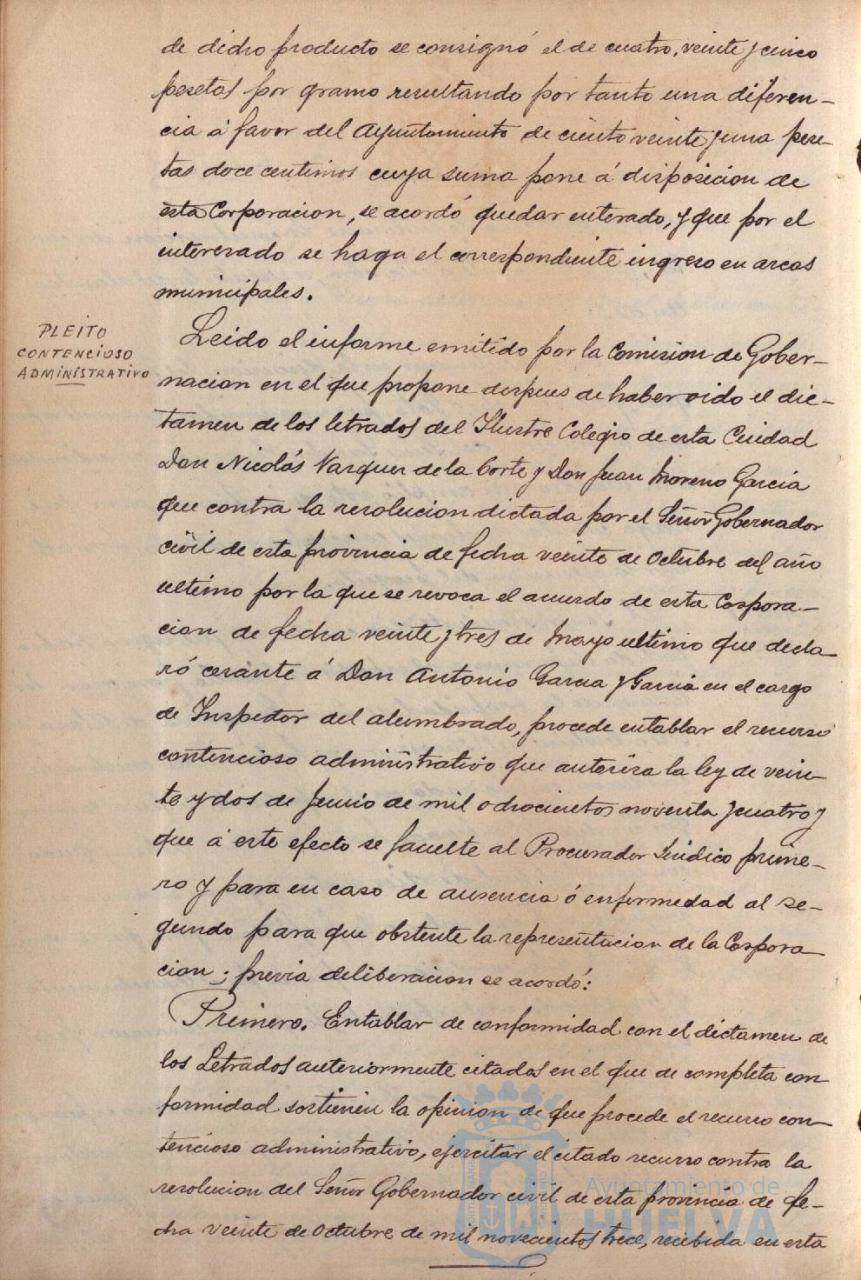 de dicho producto se consignó el de cuatro, veinte y cinco
pesetas por gramo resultando por tanto una diferen-
cia á favor del Ayuntamiento de ciento veinte y una pese-
tas doce centimos cuya suma pone á disposicion de
esta Corporacion, se acordó quedar enterado, y que por el
interesado se haga el correspondiente ingreso en arcas
municipales.
PLEITO
CONTENCIOSO
ADMINISTRATIVO
Leido el informe emitido por la Comision de Gober-
nacion en el que propone despues de haber oido el dic-
tamen de los letrados del Ilustre Colegio de esta Ciudad
Don Nicolás Vazquez de la Corte y Don Juan Moreno Garcia
que contra la resolucion dictada por el Señor Gobernador
civil de esta provincia de fecha veinte de Octubre del año
ultimo por la que se revoca el acuerdo de esta Corpora-
cion de fecha veinte y tres de Mayo ultimo que decla
ró cesante á Don Antonio Garcia y Garcia en el cargo
de Inspector del alumbrado, procede entablar el recurso
contencioso administrativo que autoriza la ley de vein
te y dos de Junio de mil ochocientos noventa y cuatro y
que á este efecto se faculte al Procurador Sindico prime-
ro y para en caso de ausencia ó enfermedad al se-
gundo para que obstente la representacion de la Corpora
cion; previa deliberacion se acordó:
Primero. Entablar de conformidad con el dictamen de
los Letrados anteriormente citados en el que de completa con
formidad sostienen la opinion de que procede el recurso con
tencioso administrativo, ejercitar el citado recurso contra la
resolucion del Señor Gobernador civil de esta provincia de fe-
cha veinte de Octubre de mil novecientos trece, recibida en esta
Ayuntamiento de
HUELVA